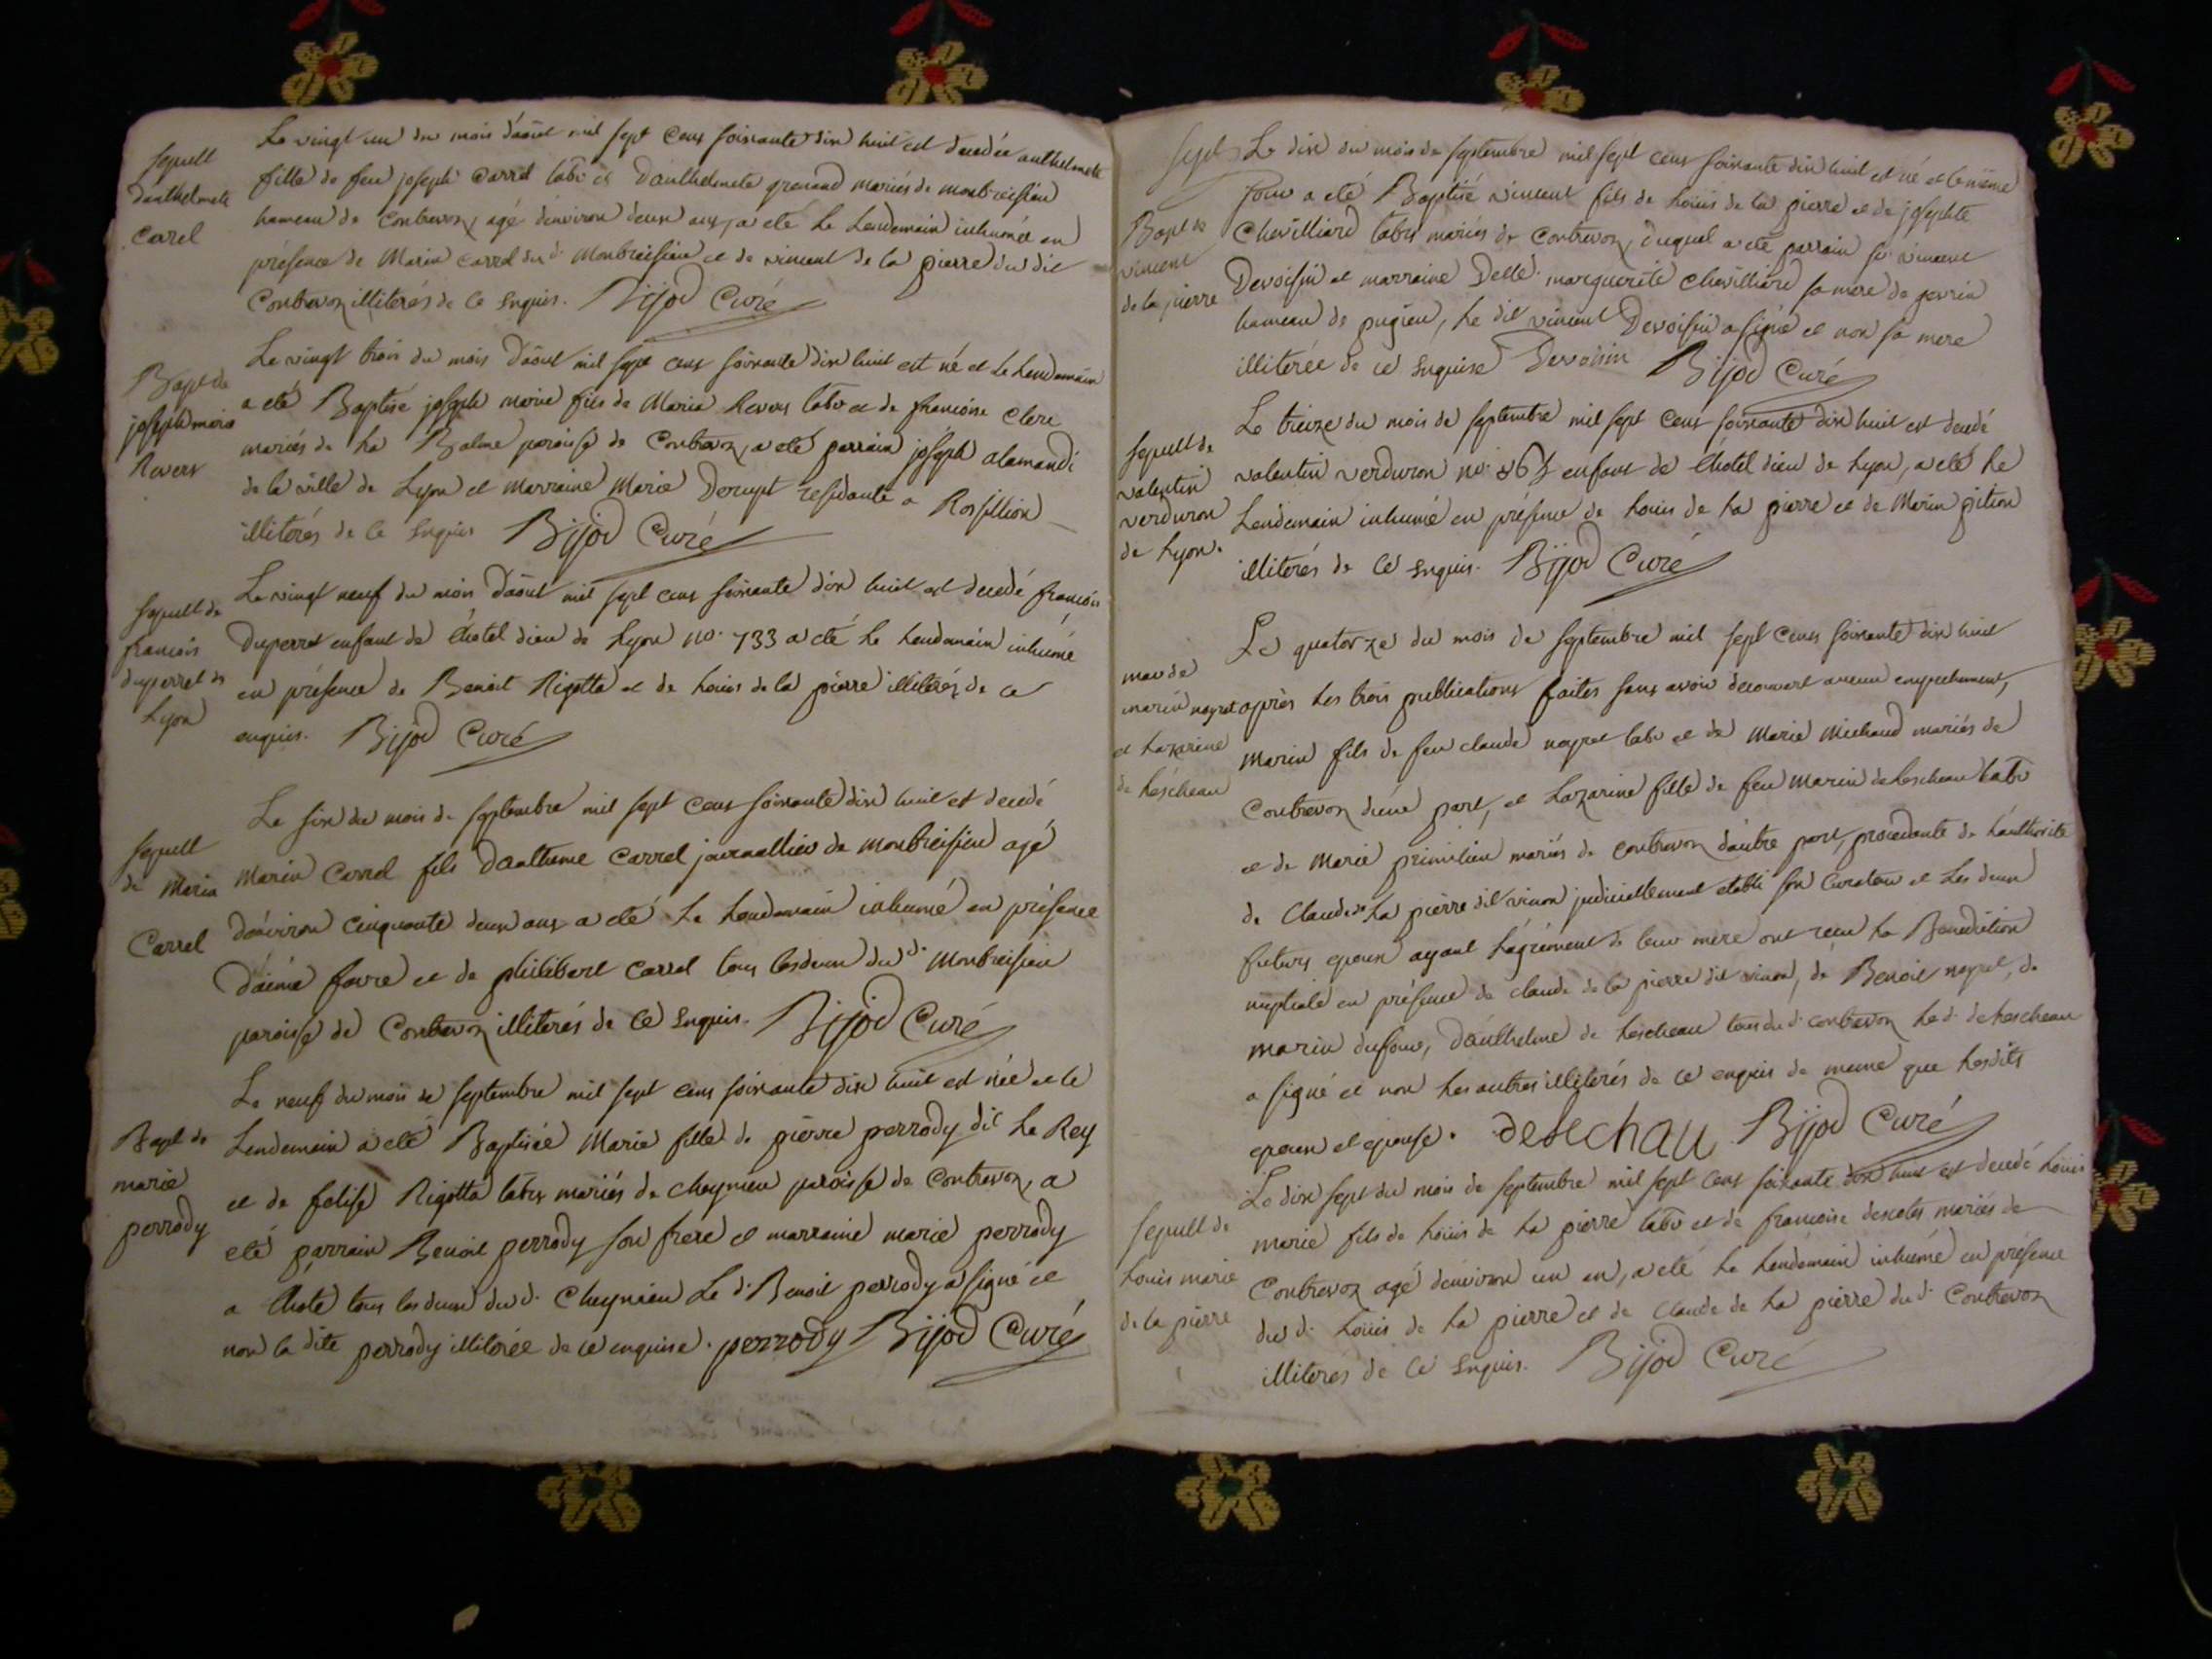 sepult
d'anthelmete
Carrel
Le vingt un du mois d'aout mil sept cens soixante dix huit est decedée anthelmete
fille de feu joseph Carrel labr et d'anthelmete grenand mariés de montbreisieu
hameau de Contrevoz, agé d'environ deux ans, a eté le Lendemain inhumée en
présence de Marin Carrel du d. Montbreisieu et de vincent de la pierre du dit
Contrevoz illiterés de ce Enquis. Bijod Curé
Bapt de
joseph marie
Revers
Le vingt trois du mois d'aout mil sept cens soixante dix huit est né et le Lendemain
a eté Baptisé joseph marie fils de Maria Revers labr et de francoise Clerc
mariés de La Balme paroisse de Contrevoz, a eté parrain joseph alamandi
de la ville de Lyon et Marraine Marie Decrupt residante a Rossillion
illiterés de ce Enquis Bijod Curé
sepult de
francois
duperret de
Lyon
Le vingt neuf du mois d'aout mil sept cens soixante dix huit est decedé francois
Duperret enfant de l'hotel dieu de Lyon no. 733 a eté le Lendemain inhumé
en présence de Benoit Rigotta et de Louis de la pierre illiterés de ce
enquis. Bijod Curé
sepult
de Maria
Carrel
Le six du mois de septembre mil sept cens soixante dix huit est decedé
Marin Carrel fils d'anthelme Carrel journallier de montbreisieu agé
d'environ cinquante deux ans a eté Le Lendemain inhumé en présence
d'aimé favre et de philibert Carrel tous les deux du d. Montbreisieu
paroisse de Contrevoz illiterés de ce Enquis. Bijod Curé
Bapt de
marie
perrody
Le neuf du mois de septembre mil sept cens soixante dix huit est née et le
Lendemain a eté Baptisée Marie fille de pierre perrody dit Le Rey
et de felise Rigotta labrs mariés de cheynieu paroisse de Contrevoz, a
eté parrain Benoit perrody son frere et marraine marie perrody
a tous les deux du d. Cheynieu Le d. Benoit perrody a signé et
non la dite perrody illiterée de ce enquise. perrody Bijod Curé
sept
Bapt de
vincent
de la pierre
Le dix du mois de septembre mil sept cens soixante dix huit est né et le même
jour a eté Baptisé vincent fils de Louis de la pierre et de josephte
Chevilliard labrs mariés de Contrevoz, duquel a eté parrain sr. vincent
Devoisin et marraine Delle. marguerite Chevilliard sa mere de gevrin
hameau de pugieu, Le dit vincent Devoisin a signé et non sa mere
illiterée de ce Enquise Devoisin Bijod Curé
sepult de
valentin
verduron
de Lyon.
Le treize du mois de septembre mil sept cens soixante dix huit est decedé
valentin verduron no. enfant de l'hotel dieu de Lyon, a eté le
Lendemain inhumé en présence de Louis de La pierre et de Marin pition
illiterés de ce Enquis. Bijod Curé
mar de
marin neyret
et Lazarine
de Lescheau
Le quatorze du mois de septembre mil sept cens soixante dix huit
après Les trois publications faites sans avoir decouvert aucun empechement,
Marin fils de feu claude neyret labr et de Marie Michaud mariés de
Contrevoz d'une part, et Lazarine fille de feu Marin de Lescheau labr
et de Marie mariés de Contrevoz d'autre part, procedante de L'authorité
de Claude de La pierre dit vinan judiciellement etabli son Curateur et Les deux
futurs epoux ayant L'agrement de leur mere ont recu La Benediction
nuptiale en présence de claude de la pierre dit vinan, de Benoit neyret, de
Marin dufour, d'anthelme de Lescheau tous du d. Contrevoz Le d. de Lescheau
a signé et non Les autres illiterés de ce enquis de meme que Lesdits
epoux et epouse. delechau Bijod Curé
sepult de
Louis marie
de la pierre
Le dix sept du mois de septembre mil sept cens soixante dix huit est decedé Louis
marie fils de Louis de La pierre labr et de francoise descotes mariés de
Contrevoz agé d'environ un an, a eté Le Lendemain inhumé en présence
du d. Louis de La pierre et de Claude de La pierre du d. Contrevoz
illiterés de ce Enquis. Bijod Curé